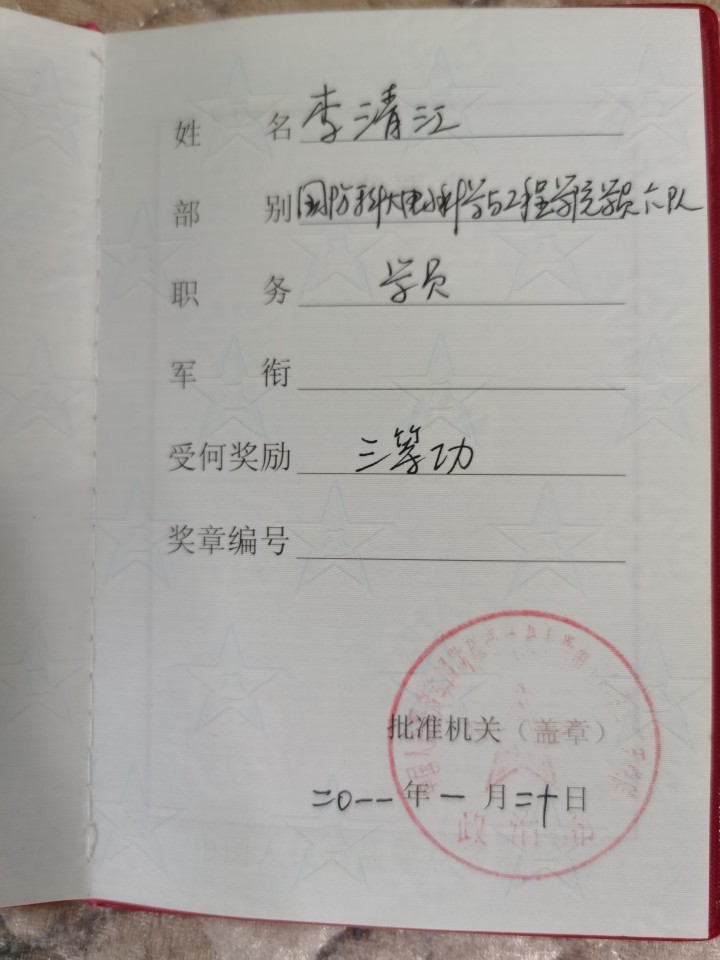 姓 名 李清江
部 别 国防科大电子科学与工程学院学员六队
职 务 学员
军 衔
受何奖励 三等功
奖章编号
批准机关（盖章）
二〇一一年一月二十日
政治部